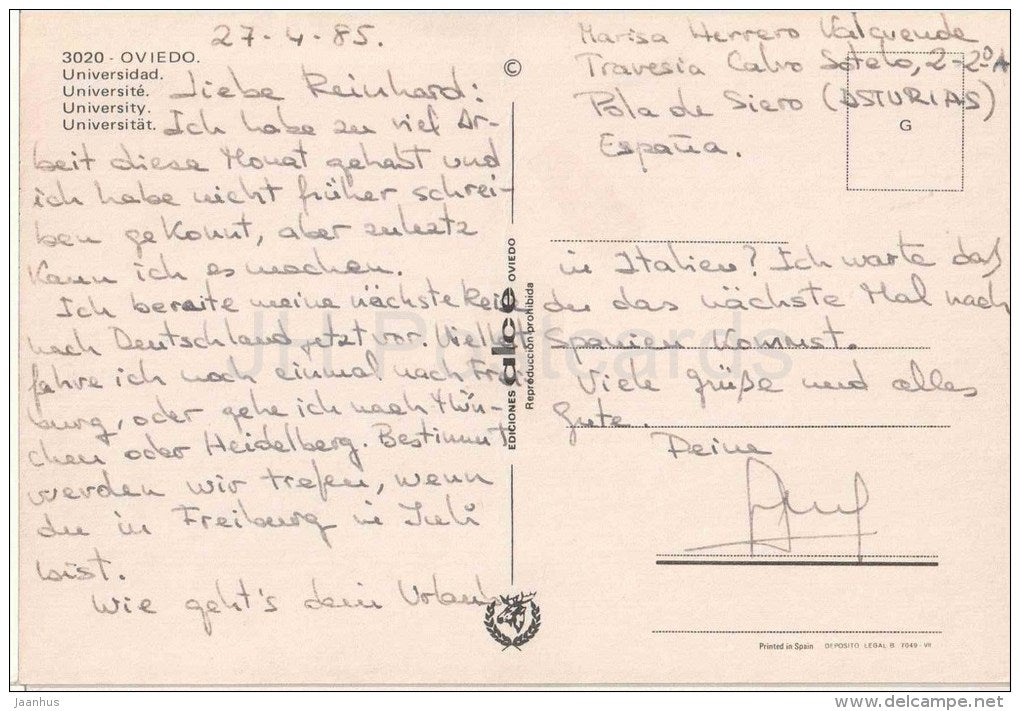 27-4-85.
3020 - OVIEDO.
Universidad.
Université.
University.
Universität.
Liebe Reinhard:
Ich habe zu viel Ar-
beit diese Monat gehabt und
ich habe nicht früher schrei-
ben gekonnt, aber zuletz
kann ich es machen.
Ich bereite meine nächste Reise
nach Deutschland jetzt vor. Vielleit
fahre ich noch einmal nach Frei-
burg, oder gehe ich nach Mün-
chen oder Heidelberg. Bestimmt
werden wir trefen, wenn
du in Freiburg in Juli
bist.
Wie geht's dein Urlaub
©
EDICIONES alce OVIEDO
Reproducción prohibida
Marisa Herrero Valquende
Travesia Calvo Sotelo, 2-2ºA
Pola de Siero (ASTURIAS)
España.
G
in Italien? Ich warte daß
du das nächste Mal nach
Spanien kommst.
Viele Grüße und alles
Gute.
Deine
Printed in Spain DEPOSITO LEGAL B. 7049 - VII
JH Postcards
jaanhus
www.delcampe.net